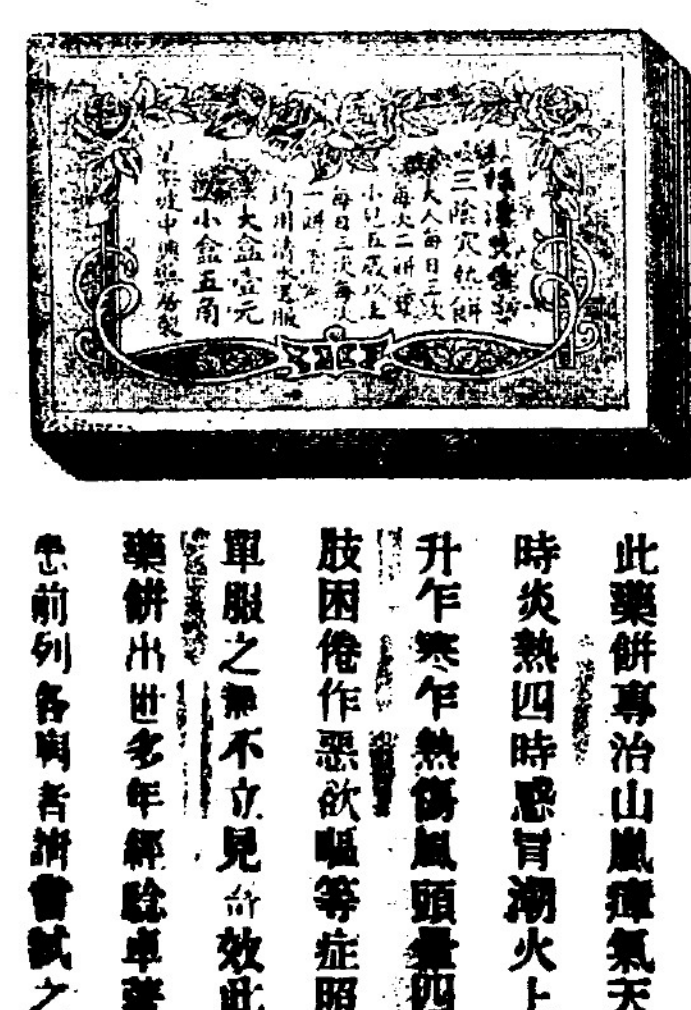 三陰寒熱餅
大人每日三次
每次二餅
小兒五歲以上
每日三次每次
一餅
均用清水送服
大盒壹元
小盒五角
此藥餅專治山嵐瘴氣天
時炎熱四時感冒潮火上
升乍寒乍熱傷風頭暈四
肢困倦作惡欲嘔等症照
單服之無不立見奇效此
藥餅出世多年經驗卓著
患前列各病者請嘗試之